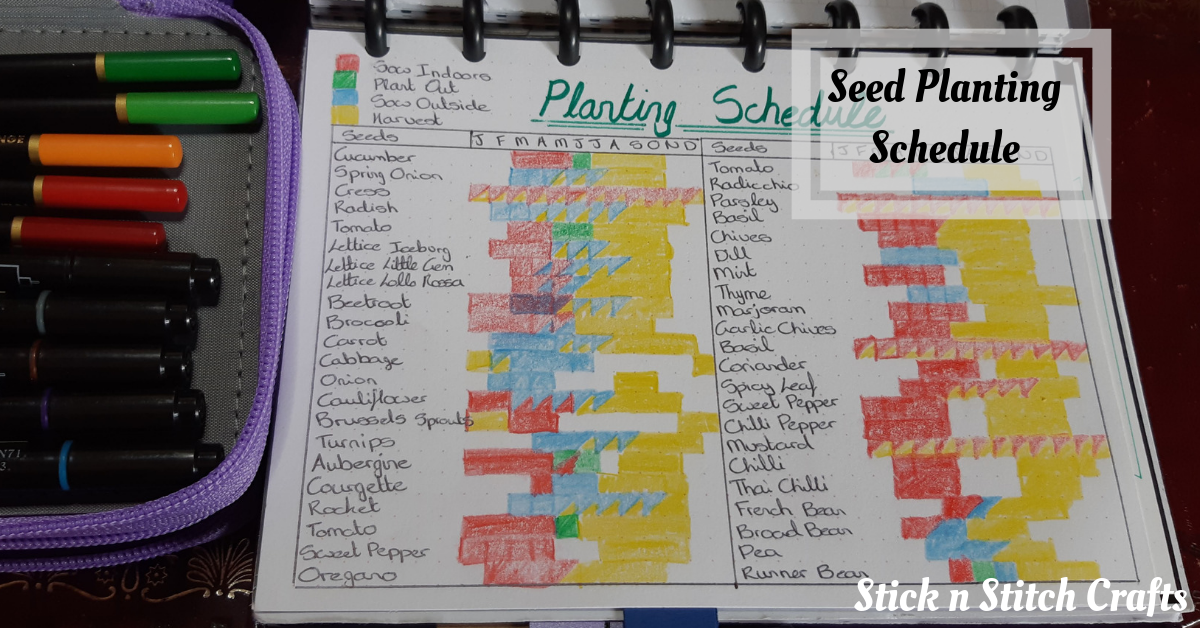 Sow Indoors
Plant Out
Sow Outside
Harvest
Planting Schedule
Seed Planting
Schedule
Seeds J F M A M J J A S O N D
Cucumber
Spring Onion
Cress
Radish
Tomato
Lettice Iceburg
Lettice Little Gem
Lettice Lollo Rossa
Beetroot
Brocooli
Carrot
Cabbage
Onion
Cauliflower
Brussels Sprouts
Turnips
Aubergine
Courgette
Rocket
Tomato
Sweet Pepper
Oregano
Seeds J F
Tomato
Radicchio
Parsley
Basil
Chives
Dill
Mint
Thyme
Marjoram
Garlic Chives
Basil
Coriander
Spicy Leaf
Sweet Pepper
Chilli Pepper
Mustard
Chilli
Thai Chilli
French Bean
Broad Bean
Pea
Runner Bean
N71
3.
Stick n Stitch Crafts